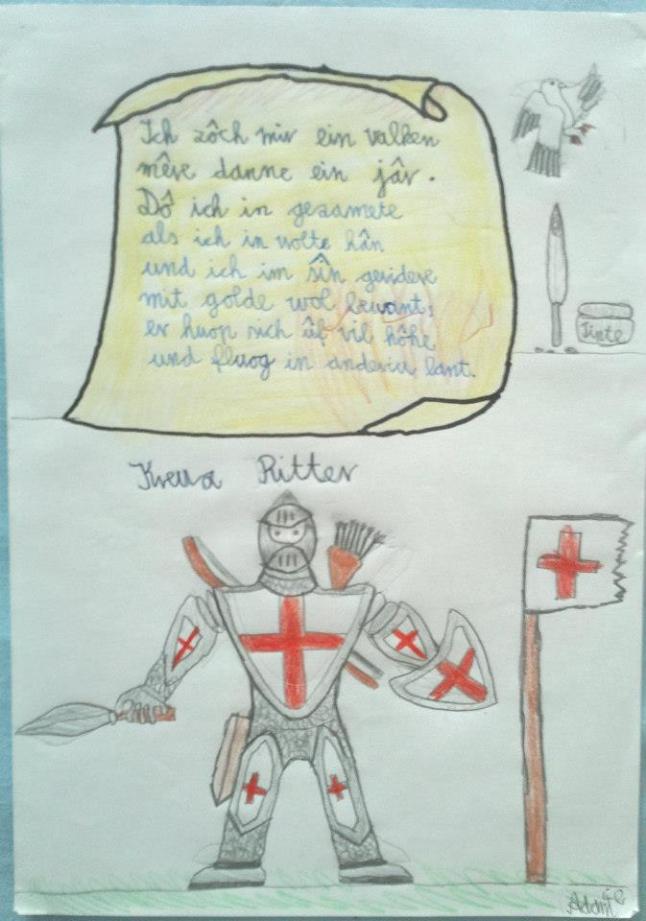 Ich zôch mir ein valken
mêre danne ein jâr.
Dô ich in gezamete
als ich in wolte hân
und ich im sîn gevidere
mit golde wol bewant,
er huop sich ûf vil hôhe
und fluog in anderiu lant.
Tinte
Kreuz Ritter